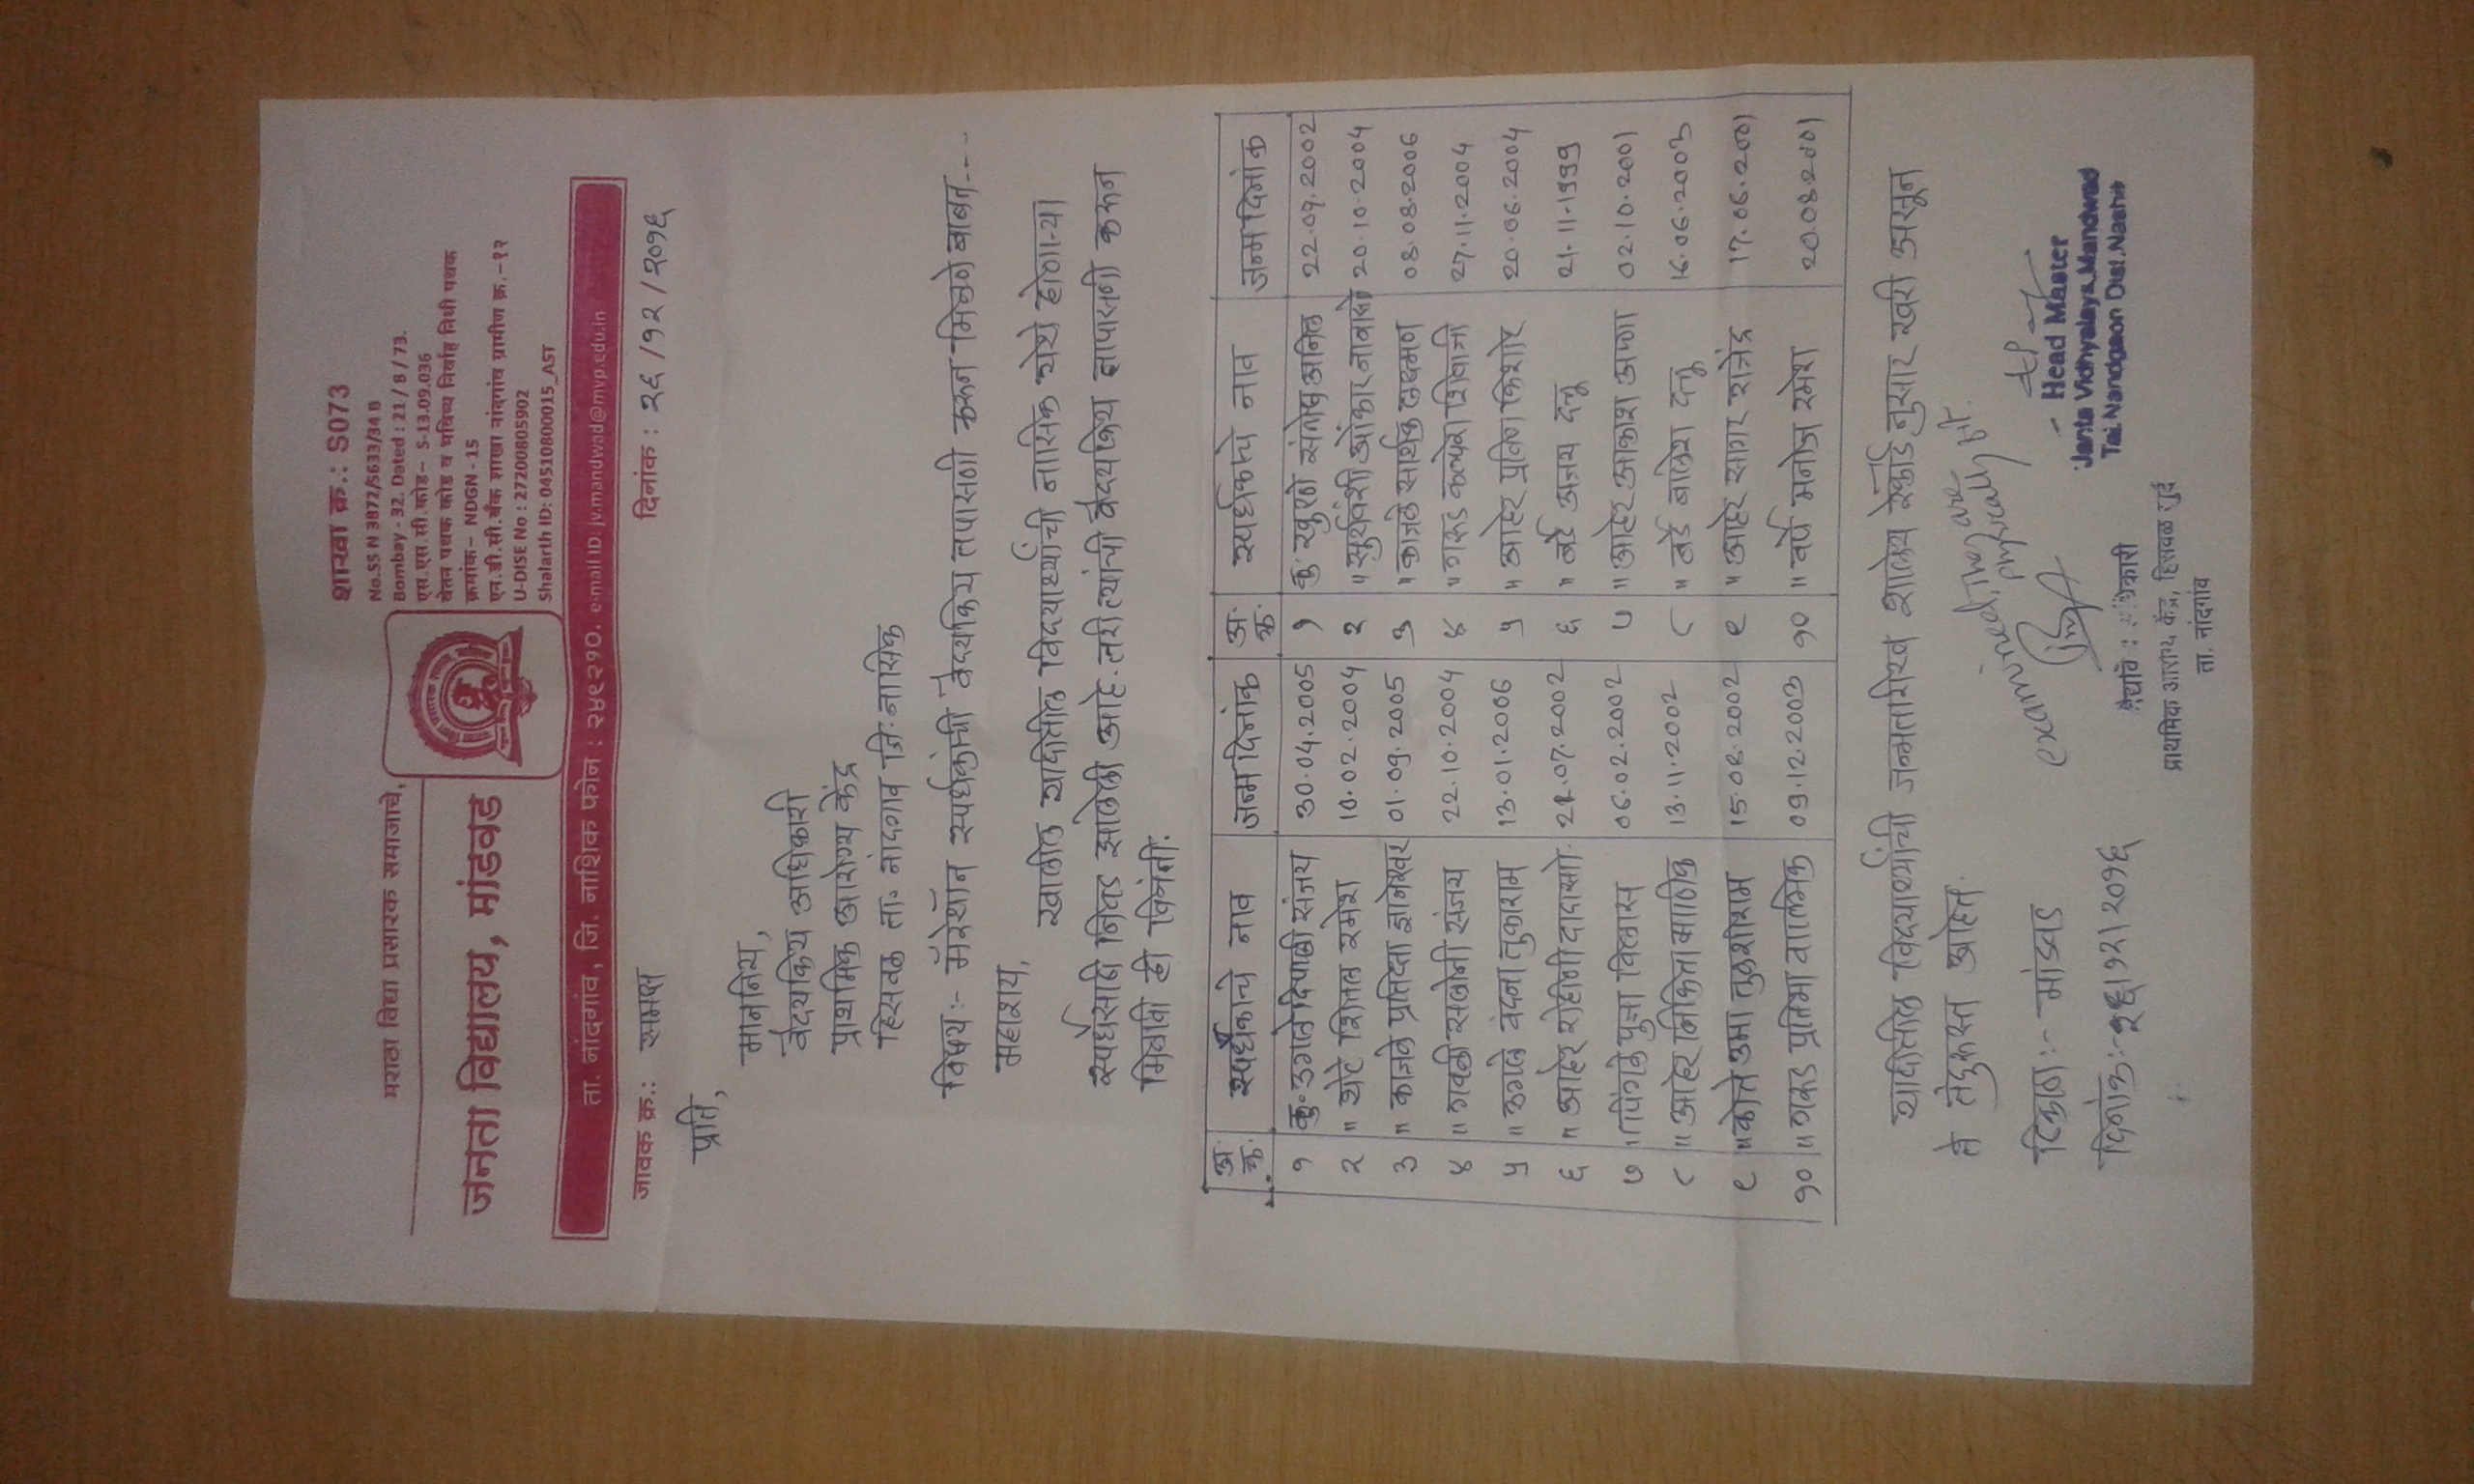 मराठा विद्या प्रसारक समाजाचे,
जनता विद्यालय, मांडवड
शाखा क्र.: S073
No.SS N 3872/5633/34 B
Bombay - 32. Dated : 21 / 8 / 73.
एस.एस.सी.कोड – S-13.09.036
वेतन पथक कोड व भविष्य निर्वाह निधी पथक
क्रमांक – NDGN - 15
एन.डी.सी.सी.बँक शाखा नांदगांव ग्रामीण क्र.-१२
U-DISE No : 27200805902
Shalarth ID: 04510800015_AST
ता. नांदगांव, जि. नाशिक फोन : २४९२१०. e-mail ID. jv.mandwad@mvp.edu.in
जावक क्र.: समक्ष दिनांक : २६/१२/२०१६
प्रति,
माननिय,
वैद्यकिय अधिकारी
प्राथमिक आरोग्य केंद्र
हिसवळ ता. नांदगाव जि. नासिक
विषय:- मॅरेथॉन स्पर्धकांची वैद्यकिय तपासणी करुन मिळणे बाबत---
महाशय,
खालील यादीतील विद्यार्थ्यांची नासिक येथे होणाऱ्या
स्पर्धेसाठी निवड झालेली आहे. तरी त्यांची वैद्यकिय तपासणी करुन
मिळावी ही विनंती.
अ.क्र. स्पर्धकाचे नाव जन्म दिनांक अ.क्र. स्पर्धकाचे नाव जन्म दिनांक
१ कु. उगले दिपाली संजय 30.04.2005 १ कु. खुरसने संतोष अनिल 22.09.2002
२ " थेटे शितल रमेश 10.02.2004 २ " सुर्यवंशी ओंकार नानासो 20.10.2004
३ " काजळे प्रतिक्षा ज्ञानेश्वर 01.09.2005 ३ " काजळे सार्थक लक्ष्मण 08.08.2006
४ " गवळी सलोनी संजय 22.10.2004 ४ " गरुड कल्पेश शिवाजी 27.11.2004
५ " उगले वंदना तुकाराम 13.01.2006 ५ " आहेर प्रविण किशोर 20.06.2004
६ " आहेर रोहीणी दादासो. 21.07.2002 ६ " बर्डे अजय दत्तू 21.11.1999
७ " पिंगळे पुजा विलास 06.02.2002 ७ " आहेर आकाश अण्णा 02.10.2001
८ " आहेर निकिता कार्तिक 13.11.2002 ८ " बर्डे बालेश दत्तू 16.06.2003
९ " कोते उमा तुळशीराम 15.08.2002 ९ " आहेर सागर राजेंद्र 17.06.2001
१० " गरुड प्रतिमा वाल्मिक 09.12.2003 १० " वर्पे मनोज रमेश 20.08.2001
यादीतील विद्यार्थ्यांची जन्मतारीख शालेय रेकॉर्ड नुसार खरी असून
ते तंदुरुस्त आहेत.
examined, They are
physically fit.
ठिकाण:- मांडवड
दिनांक:- २६/१२/२०१६
Head Master
Janta Vidhyalaya,Mandwad
Tal.Nandgaon Dist.Nashik
प्राथमिक आरोग्य केंद्र, हिसवळ बुर्द
ता. नांदगांव